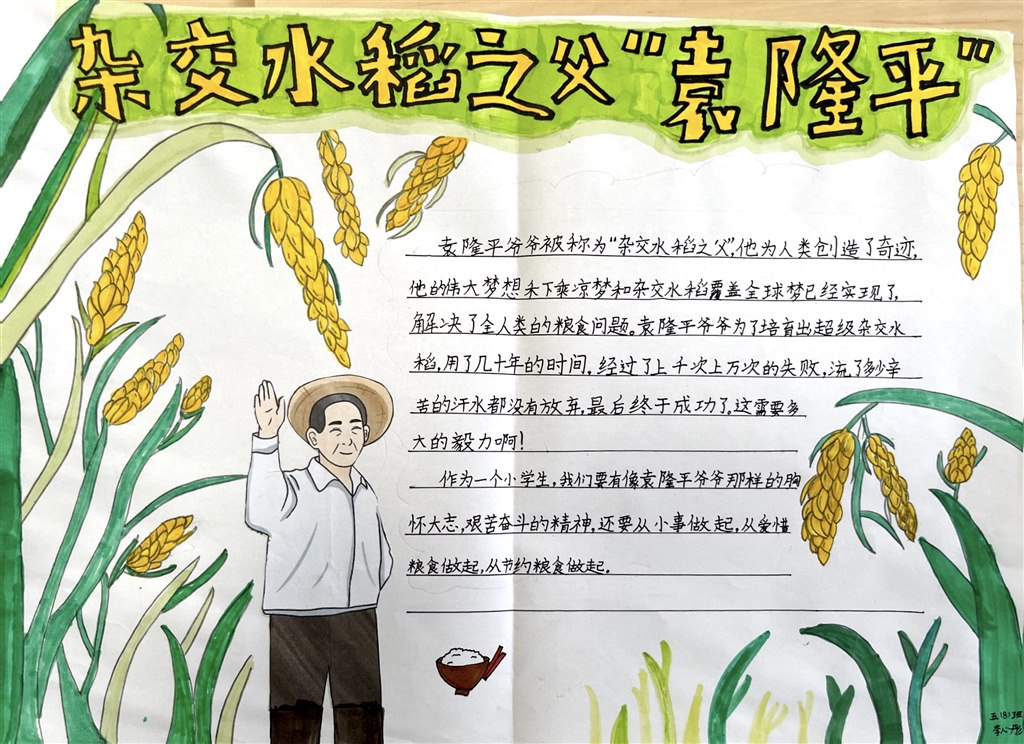 杂交水稻之父"袁隆平"
袁隆平爷爷被称为"杂交水稻之父",他为人类创造了奇迹,
他的伟大梦想禾下乘凉梦和杂交水稻覆盖全球梦已经实现了,
解决了全人类的粮食问题。袁隆平爷爷为了培育出超级杂交水
稻,用了几十年的时间,经过了上千次上万次的失败,流了多少辛
苦的汗水都没有放弃,最后终于成功了,这需要多
大的毅力啊!
作为一个小学生,我们要有像袁隆平爷爷那样的胸
怀大志,艰苦奋斗的精神,还要从小事做起,从爱惜
粮食做起,从节约粮食做起。
五(8)班
李心彤